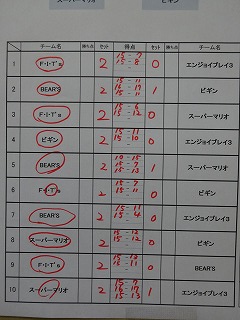 スーパーマリオ ビギン
チーム名 勝ち点 セット 得点 セット 勝ち点 チーム名
1 F・I・T's 2 15-7 15-8 0 エンジョイプレイ3
2 BEAR'S 2 1 ビギン
3 F・I・T's 2 15-6 15-12 0 スーパーマリオ
4 ビギン 2 15-11 0 エンジョイプレイ3
5 BEAR'S 2 10-15 1 スーパーマリオ
6 F・I・T's 2 15-7 15-11 0 ビギン
7 BEAR'S 2 15-11 15-4 0 エンジョイプレイ3
8 スーパーマリオ 2 15-12 15-12 0 ビギン
9 F・I・T's 2 15-12 15-11 0 BEAR'S
10 スーパーマリオ 2 16-17 15-13 1 エンジョイプレイ3